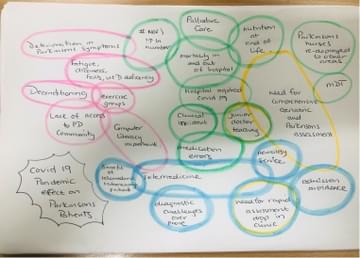 Deterioration in
Parkinsons symptoms
# NOF's
in
numbers
Palliative
Care
nutrition
at
end of
life
Parkinsons
nurses
re-deployed to
other
areas
MDT
Fatigue,
dizziness,
falls, vit D deficiency
mortality in
and out
of hospital
Deconditioning
exercise
groups
Hospital acquired
covid 19
need for
comprehensive
geriatric
and
Parkinsons
assessment
Lack of access
to PD
Community
Computer
literacy
important
Clinical
junior
doctor
teaching
medication
errors
neurology
service
Covid 19
Pandemic
effect on
Parkinsons
Patients
Benefit of
telemedicine
patient
Telemedicine
admission
avoidance
diagnostic
challenges
over
phone
need for rapid
assessment
drop in
clinic